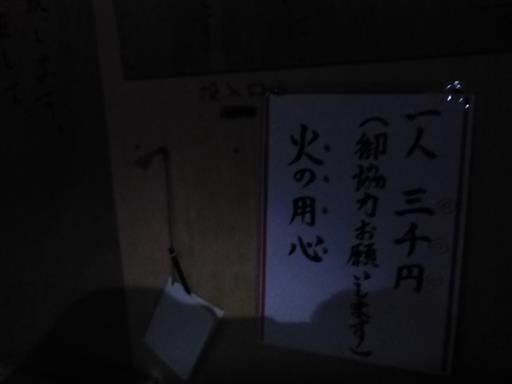 一人 三千円
(御協力お願いします)
火の用心
投入口
します。